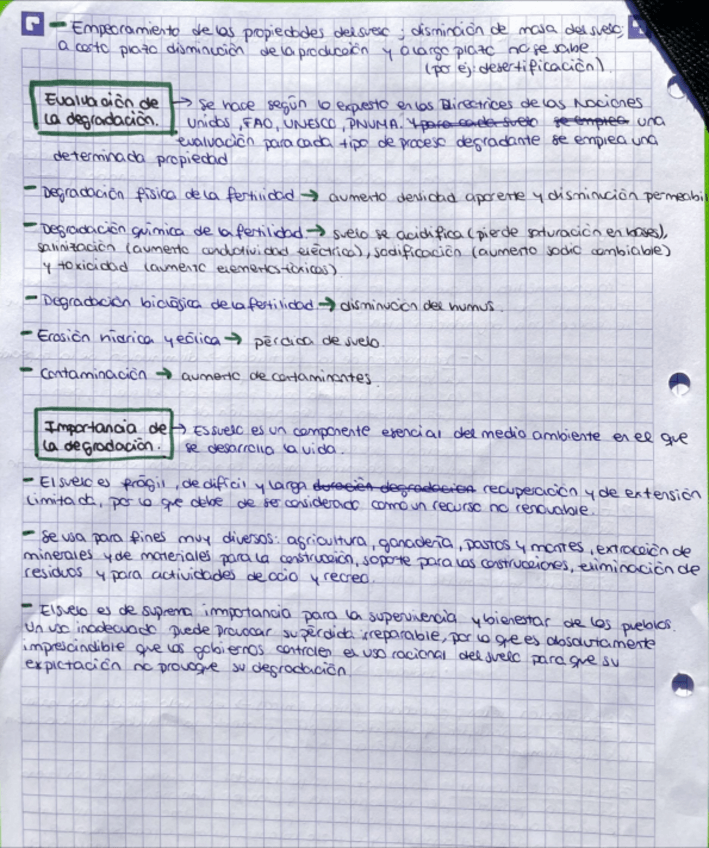 - Empeoramiento de las propiedades del suelo; disminución de masa del suelo;
a corto plazo disminución de la producción y a largo plazo no se sabe
(por ej: desertificación).
Evaluación de la degradación. → Se hace según lo expuesto en las Directrices de las Naciones
Unidas, FAO, UNESCO, PNUMA. Y para cada suelo se emplea una
evaluación para cada tipo de proceso degradante se emplea una
determinada propiedad
- Degradación física de la fertilidad → aumento densidad aparente y disminución permeabili
- Degradación química de la fertilidad → suelo se acidifica (pierde saturación en bases),
salinización (aumento conductividad eléctrica), sodificación (aumento sodio cambiable)
y toxicidad (aumento elementos tóxicos)
- Degradación biológica de la fertilidad → disminución del humus.
- Erosión hídrica y eólica → pérdida de suelo.
- Contaminación → aumento de contaminantes.
Importancia de la degradación. → El suelo es un componente esencial del medio ambiente en el que
se desarrolla la vida.
- El suelo es frágil, de difícil y larga duración degradación recuperación y de extensión
limitada, por lo que debe de ser considerado como un recurso no renovable.
- Se usa para fines muy diversos: agricultura, ganadería, pastos y montes, extracción de
minerales y de materiales para la construcción, soporte para las construcciones, eliminación de
residuos y para actividades de ocio y recreo.
- El suelo es de suprema immportancia para la supervivencia y bienestar de los pueblos.
Un uso inadecuado puede provocar su pérdida irreparable, por lo que es absolutamente
imprescindible que los gobiernos controlen el uso racional del suelo para que su
explotación no provoque su degradación.